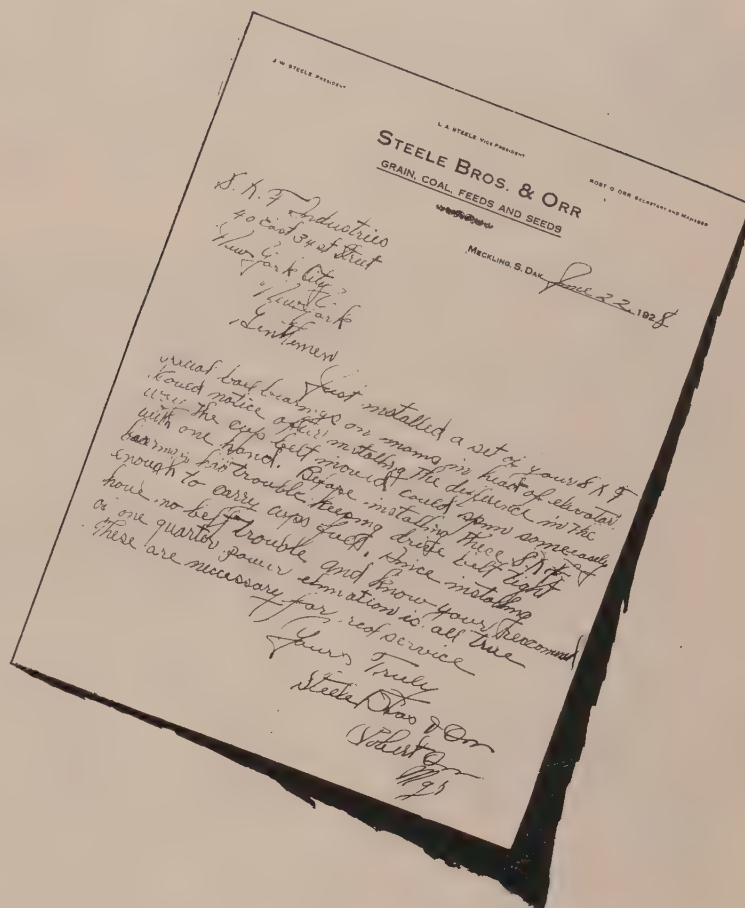 J. W. STEELE PRESIDENT
L. A. STEELE VICE PRESIDENT
ROBT O. ORR SECRETARY AND MANAGER
STEELE BROS. & ORR
GRAIN, COAL, FEEDS AND SEEDS
MECKLING, S. DAK. June 22 1928
S. K. F Industries
40 East 34 st Street
New York City
New York
Gentlemen
Just installed a set of your S K F
ball bearings on mains in head of elevator.
notice after installing the difference in the
way the cup belt moved could spin some easily
with one hand. Before installing these S.K.F.
bearings had trouble keeping drive belt tight
enough to carry cups full. Since installing
have no belt trouble and know your recommend
of one quarter power is all true
These are necessary for service
Yours Truly
Steele Bros & Orr
Robert Orr
Mgr